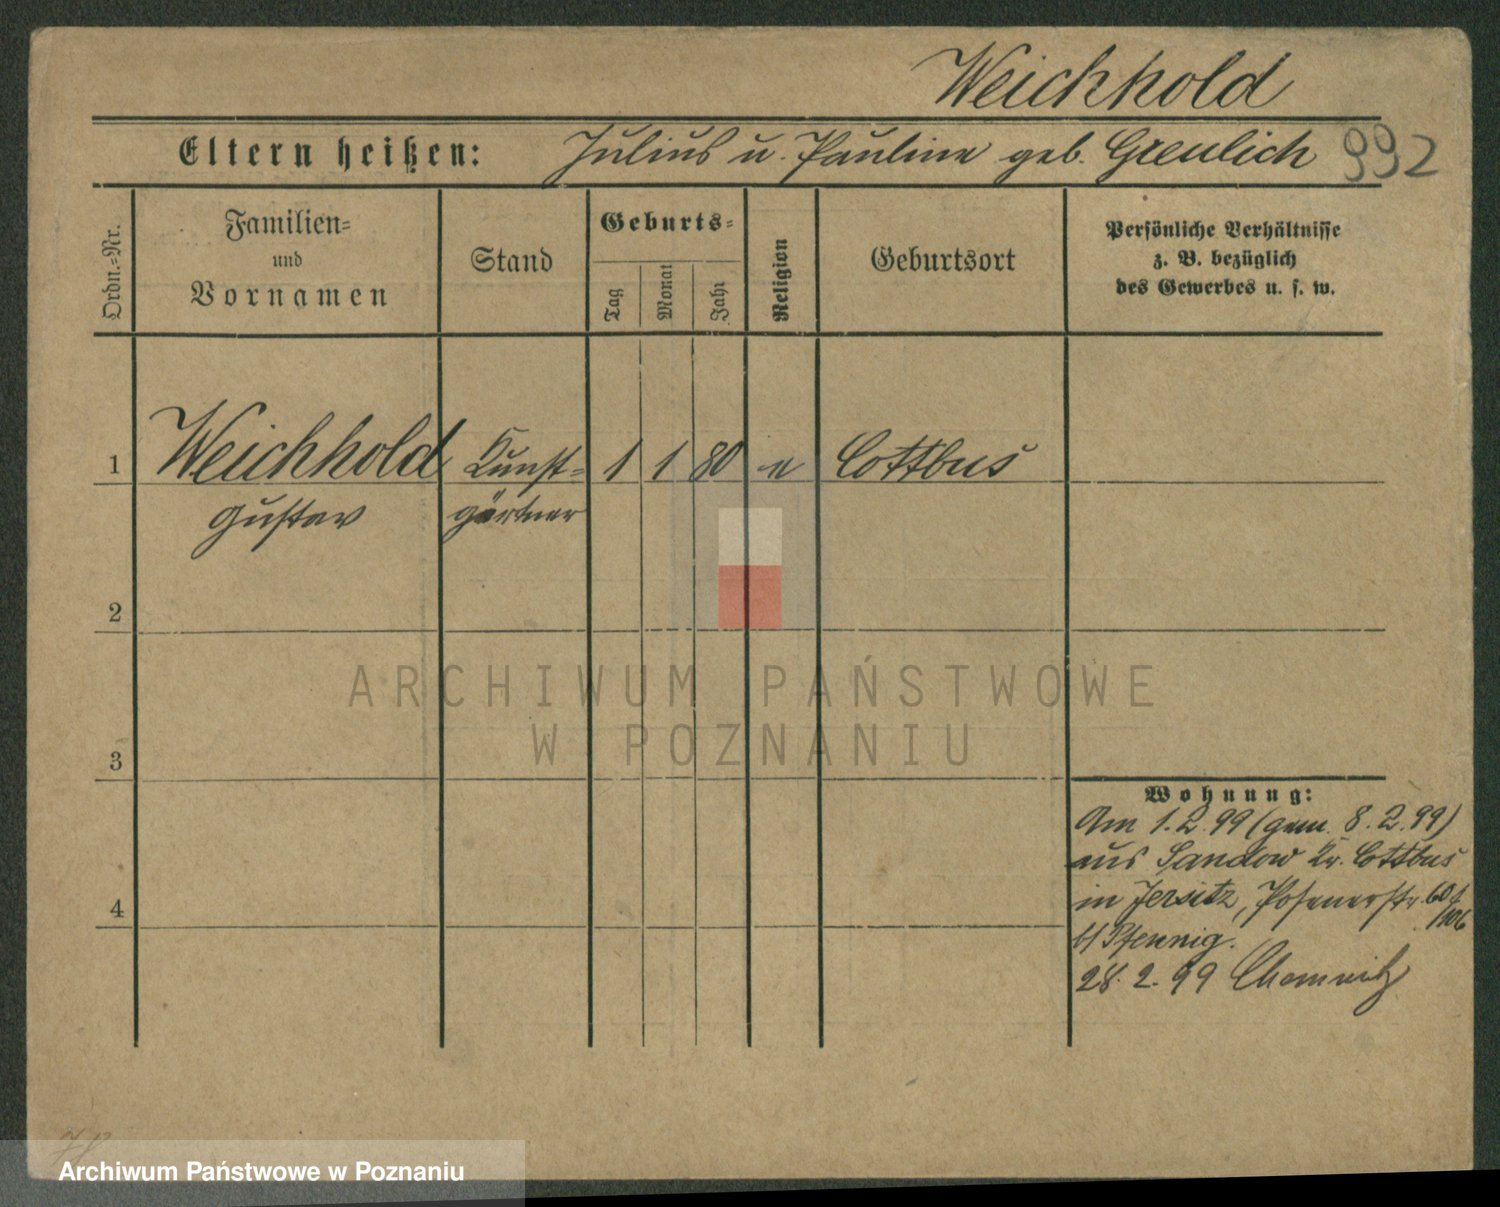 Weichhold
Eltern heißen: Julius u. Pauline geb. Greulich 992
Ordn.-Nr.
Familien-
und
Vornamen
Stand
Geburts-
Tag
Monat
Jahr
Religion
Geburtsort
Persönliche Verhältnisse
z. B. bezüglich
des Gewerbes u. s. w.
1 Weichhold Kunst- 1 1 80 Cottbus
Gustav gärtner
2
3
4
Wohnung:
Am 1.2.99 (gem. 8.2.99)
aus Sandow Kr. Cottbus
in Jersitz, Posenerstr.
b/ Pfennig.
28.2.99 Chemnitz
ARCHIWUM PAŃSTWOWE
W POZNANIU
Archiwum Państwowe w Poznaniu